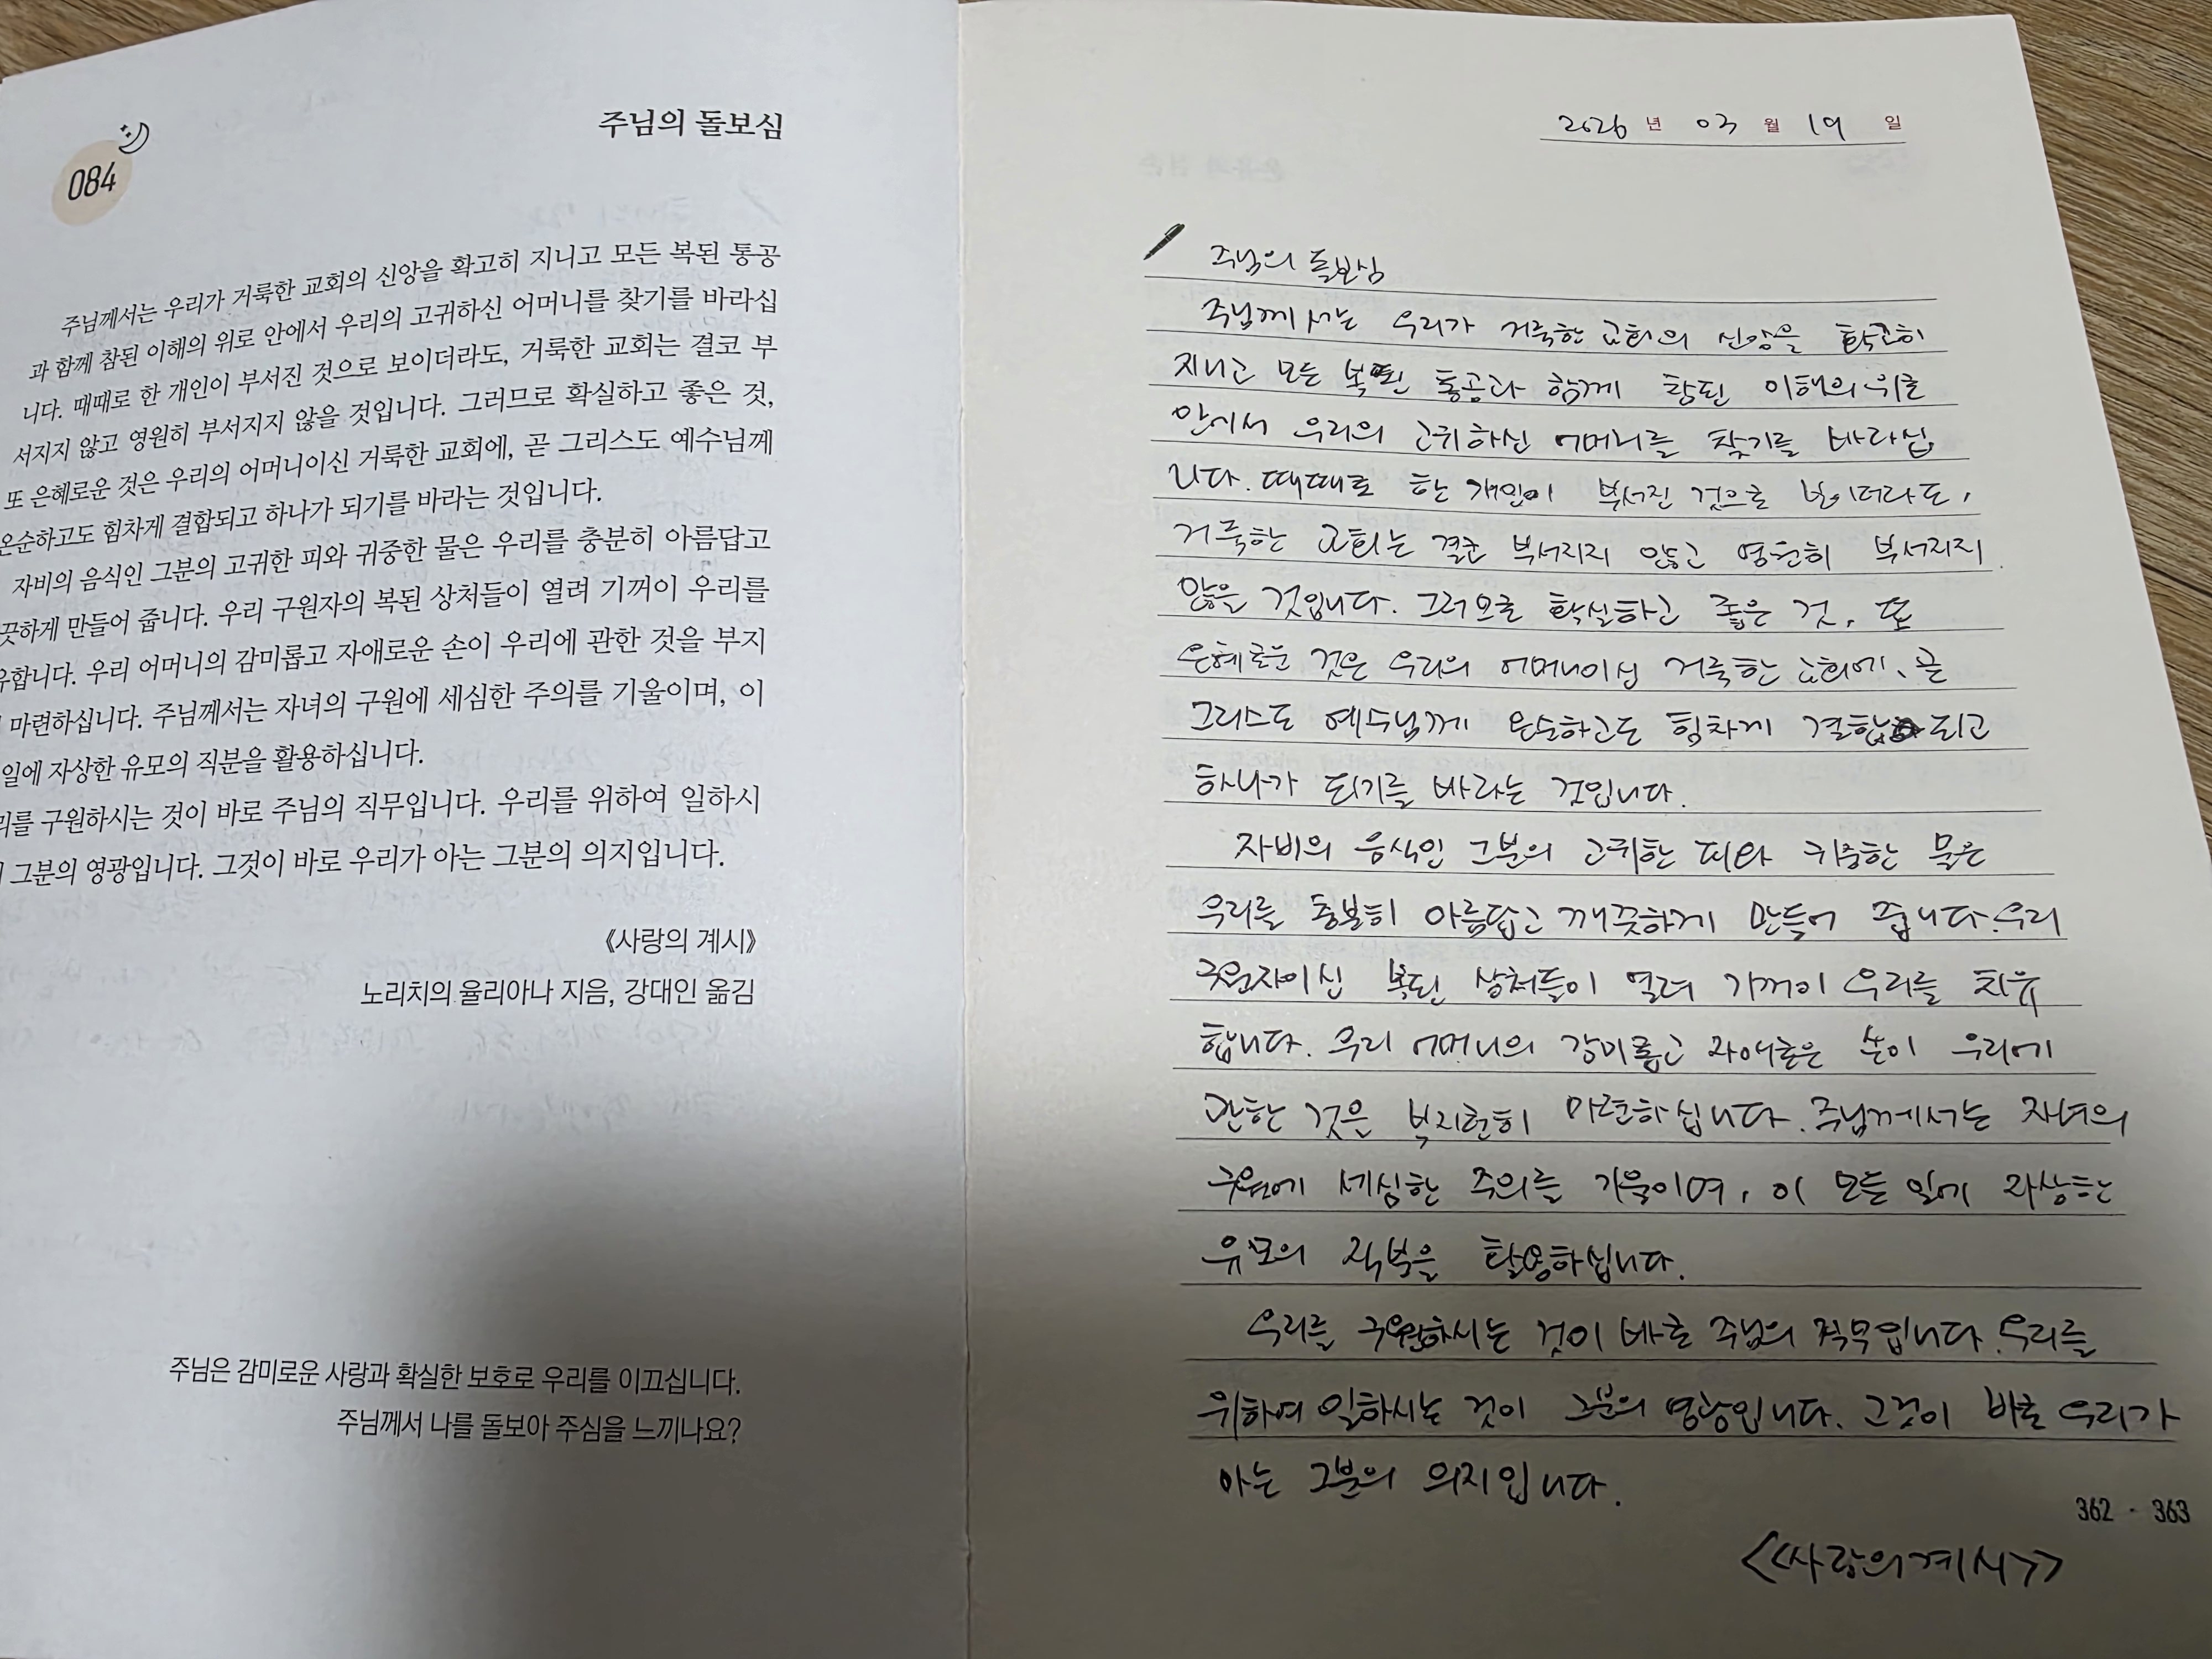 084
주님의 돌보심
주님께서는 우리가 거룩한 교회의 신앙을 확고히 지니고 모든 복된 통공
과 함께 참된 이해의 위로 안에서 우리의 고귀하신 어머니를 찾기를 바라십
니다. 때때로 한 개인이 부서진 것으로 보이더라도, 거룩한 교회는 결코 부
서지지 않고 영원히 부서지지 않을 것입니다. 그러므로 확실하고 좋은 것,
또 은혜로운 것은 우리의 어머니이신 거룩한 교회에, 곧 그리스도 예수님께
온순하고도 힘차게 결합되고 하나가 되기를 바라는 것입니다.
자비의 음식인 그분의 고귀한 피와 귀중한 물은 우리를 충분히 아름답고
끗하게 만들어 줍니다. 우리 구원자의 복된 상처들이 열려 기꺼이 우리를
유합니다. 우리 어머니의 감미롭고 자애로운 손이 우리에 관한 것을 부지
마련하십니다. 주님께서는 자녀의 구원에 세심한 주의를 기울이며, 이
일에 자상한 유모의 직분을 활용하십니다.
리를 구원하시는 것이 바로 주님의 직무입니다. 우리를 위하여 일하시
그분의 영광입니다. 그것이 바로 우리가 아는 그분의 의지입니다.
《사랑의 계시》
노리치의 율리아나 지음, 강대인 옮김
주님은 감미로운 사랑과 확실한 보호로 우리를 이끄십니다.
주님께서 나를 돌보아 주심을 느끼나요?
2026 년 03 월 19 일
주님의 돌보심
주님께서는 우리가 거룩한 교회의 신앙을 확고히
지니고 모든 복된 통공과 함께 참된 이해의 위로
안에서 우리의 고귀하신 어머니를 찾기를 바라십
니다. 때때로 한 개인이 부서진 것으로 보이더라도,
거룩한 교회는 결코 부서지지 않고 영원히 부서지지
않을 것입니다. 그러므로 확실하고 좋은 것, 또
은혜로운 것은 우리의 어머니이십 거룩한 교회에, 곧
그리스도 예수님께 온순하고도 힘차게 결합되고
하나가 되기를 바라는 것입니다.
자비의 음식인 그분의 고귀한 피와 귀중한 물은
우리를 충분히 아름답고 깨끗하게 만들어 줍니다. 우리
구원자이십 복된 상처들이 열려 기꺼이 우리를 치유
합니다. 우리 어머니의 감미롭고 자애로운 손이 우리에
관한 것은 부지런히 마련하십니다. 주님께서는 자녀의
구원에 세심한 주의를 기울이며, 이 모든 일에 자상한
유모의 직분을 활용하십니다.
우리를 구원하시는 것이 바로 주님의 직무입니다. 우리를
위하여 일하시는 것이 그분의 영광입니다. 그것이 바로 우리가
아는 그분의 의지입니다.
362 - 363
<<사랑의 계시>>